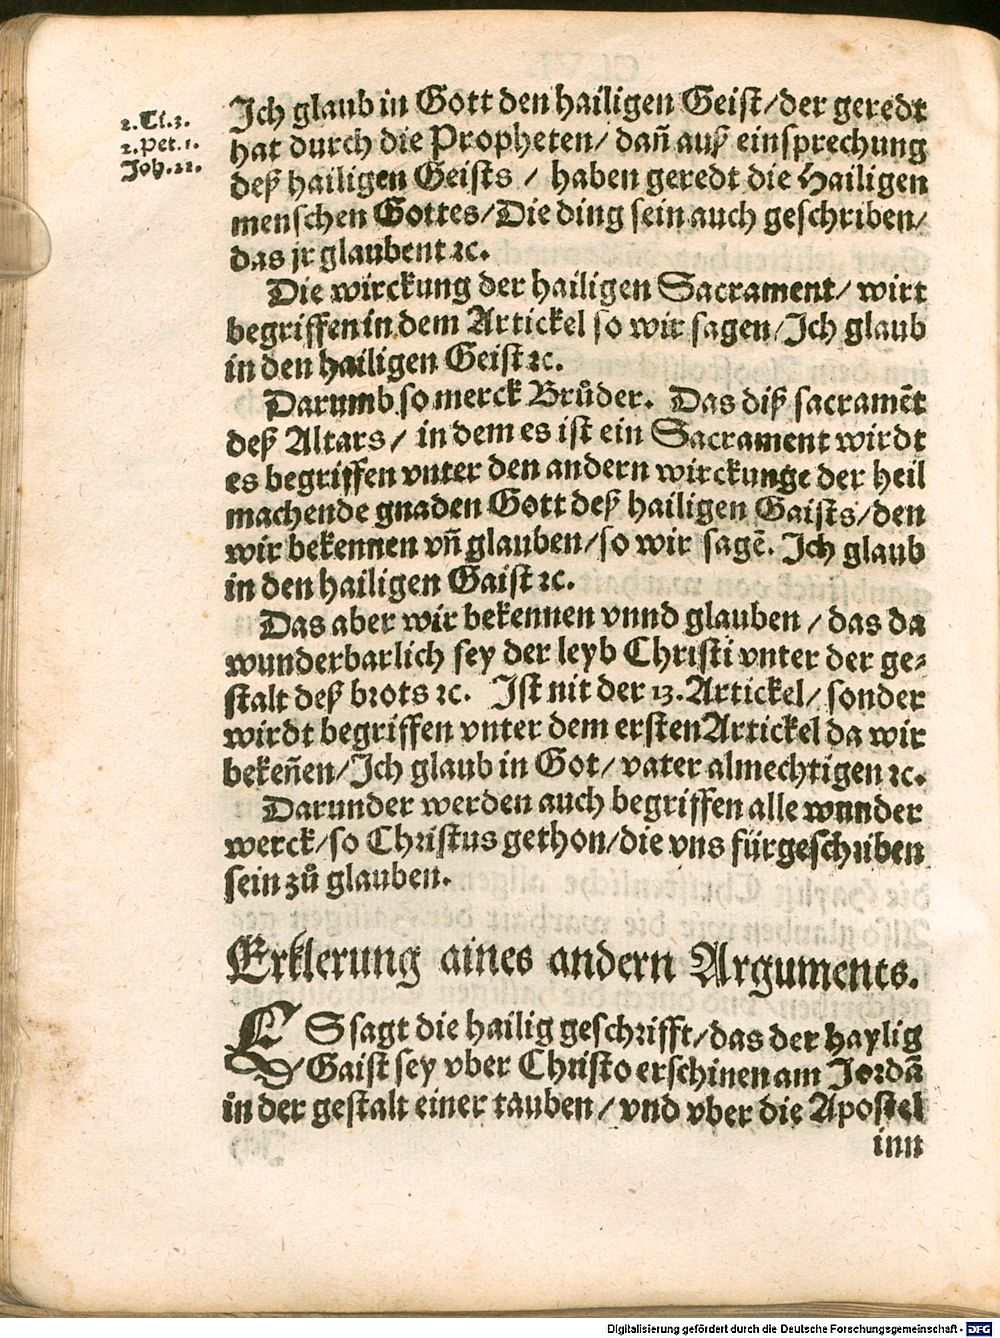 2.Ti.3.
2.Pet.1.
Joh.21.
Ich glaub in Gott den hailigen Geist/der geredt
hat durch die Propheten/ dañ auß einsprechung
deß hailigen Geists / haben geredt die Hailigen
menschen Gottes/Die ding sein auch geschriben/
das jr glaubent ꝛc.
Die wirckung der hailigen Sacrament/ wirt
begriffen in dem Artickel so wir sagen/Ich glaub
in den hailigen Geist ꝛc.
Darumb so merck Brůder. Das diß sacramēt
deß Altars/ in dem es ist ein Sacrament wirdt
es begriffen vnter den andern wirckunge der heil
machende gnaden Gott deß hailigen Gaists/den
wir bekennen vñ glauben/so wir sagē. Ich glaub
in den hailigen Gaist ꝛc.
Das aber wir bekennen vnnd glauben / das da
wunderbarlich sey der leyb Christi vnter der ge⸗
stalt deß brots ꝛc. Ist nit der 13. Artickel/ sonder
wirdt begriffen vnter dem ersten Artickel da wir
bekeñen/Ich glaub in Got/ vater almechtigen ꝛc.
Darunder werden auch begriffen alle wunder
werck/so Christus gethon/die vns fürgeschriben
sein zů glauben.
Erklerung aines andern Arguments.
ES sagt die hailig geschrifft/das der haylig
Gaist sey vber Christo erschinen am Jordā
in der gestalt einer tauben/vnd vber die Apostel
inn
Digitalisierung gefördert durch die Deutsche Forschungsgemeinschaft - DFG